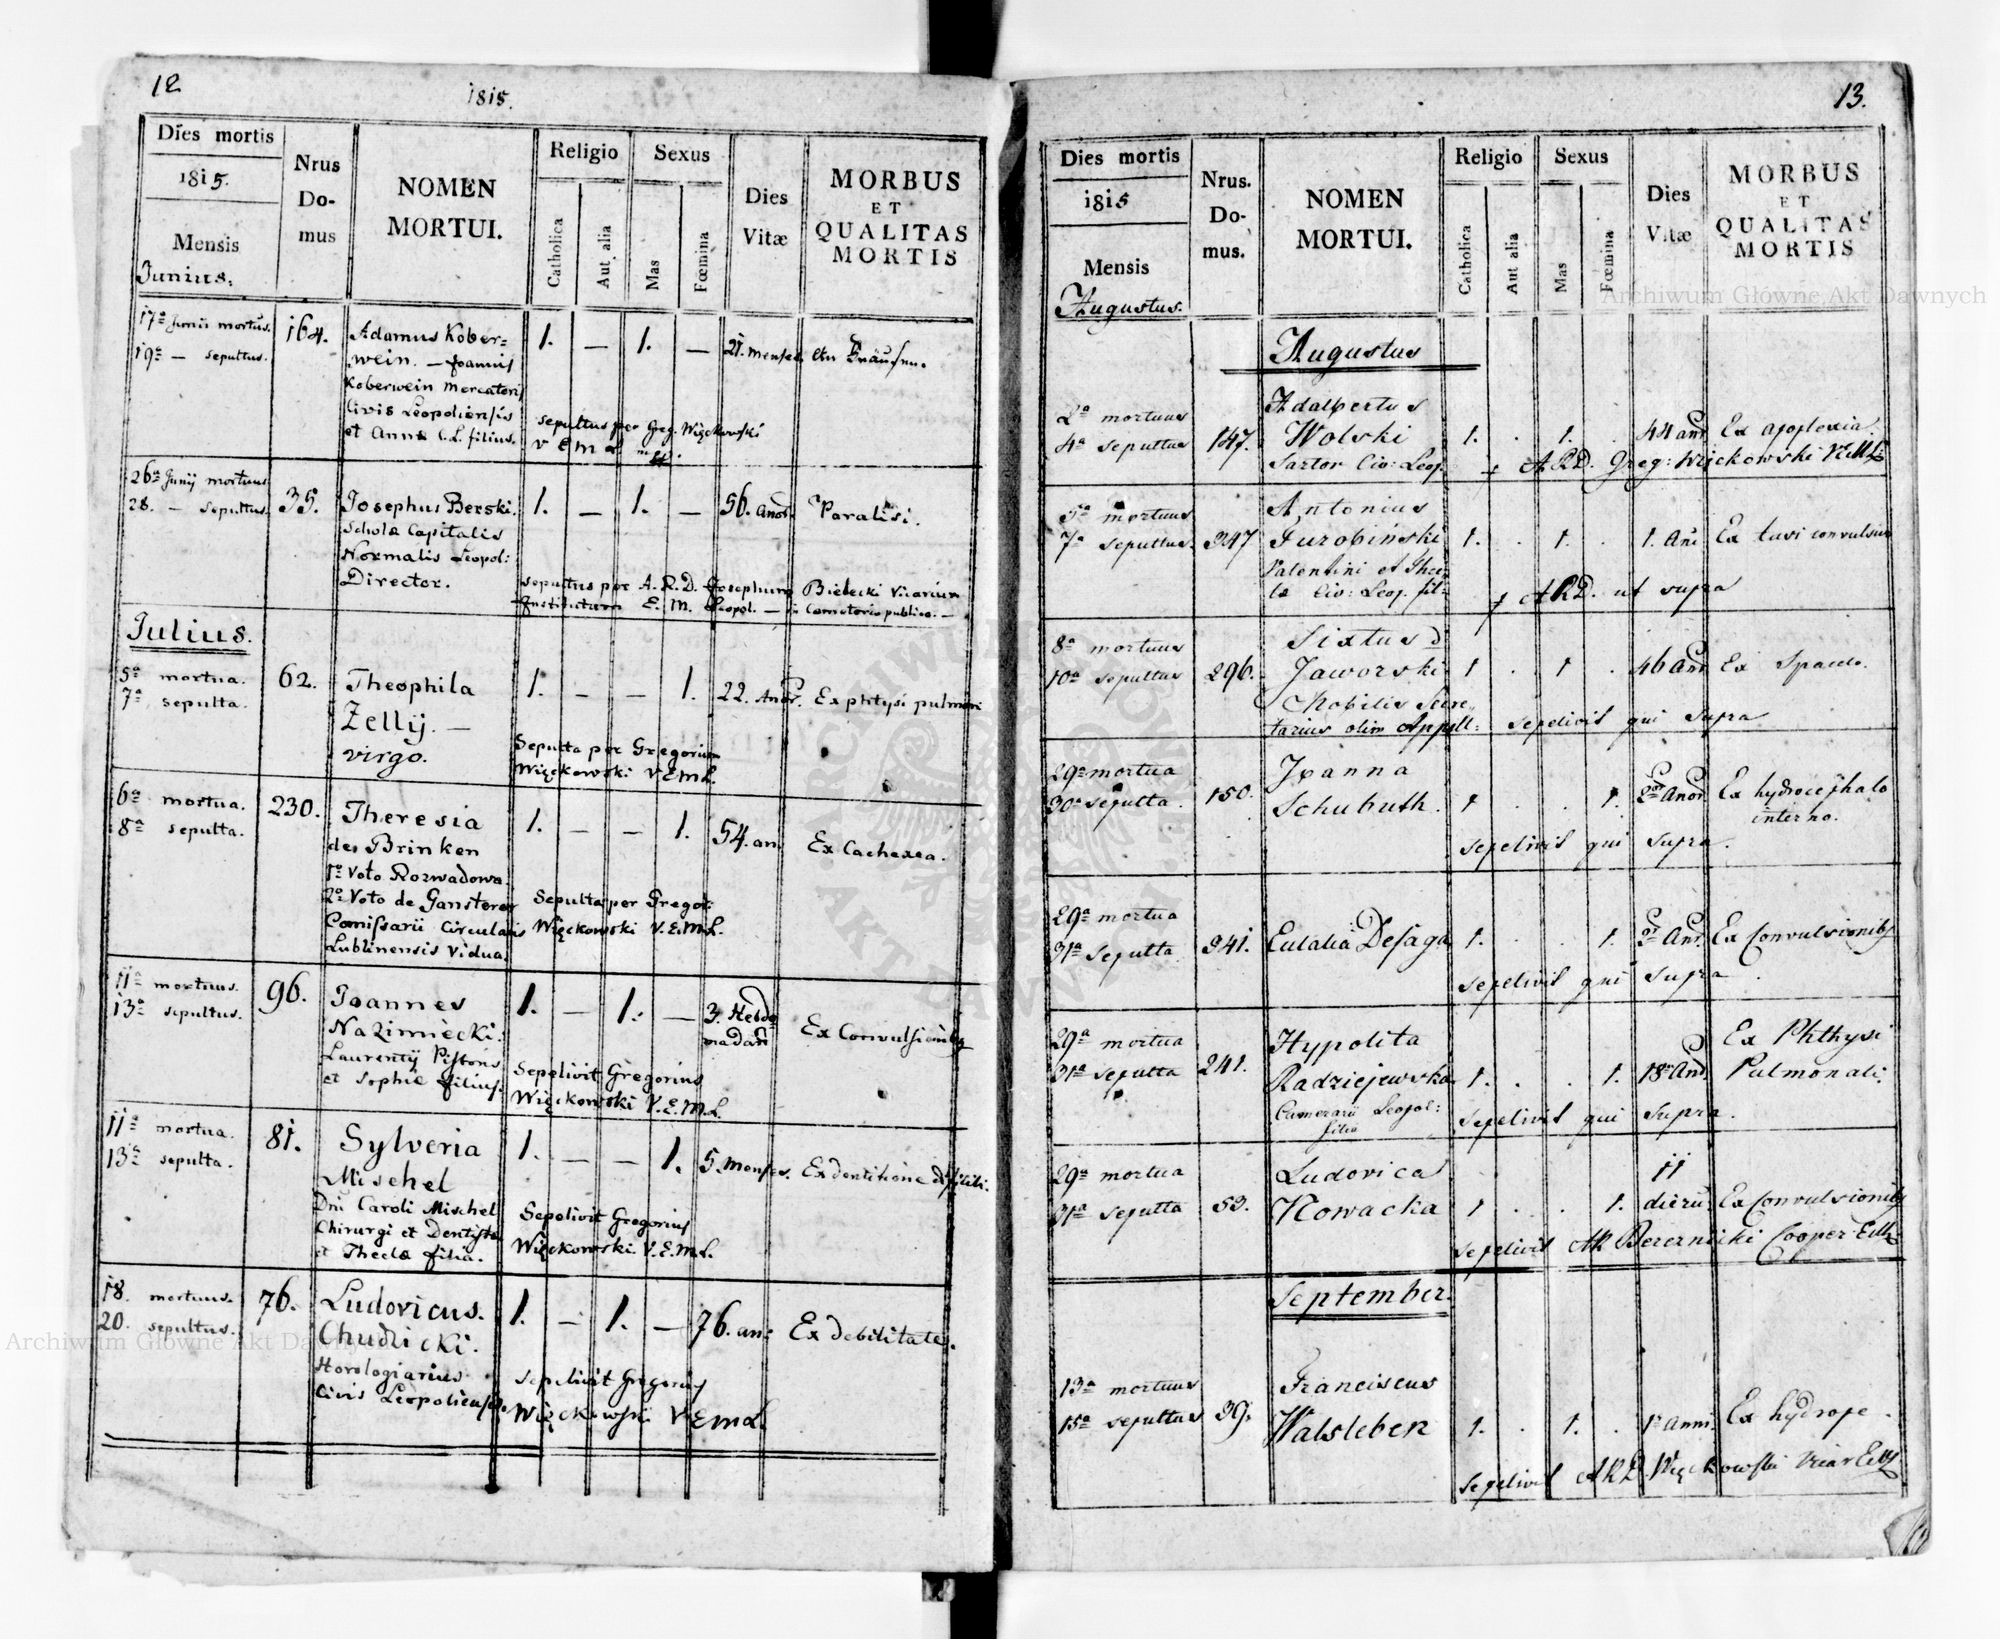 12
1815.
Dies mortis
1815.
Mensis
Junius.
Nrus
Do-
mus
NOMEN
MORTUI.
Religio
Catholica
Aut alia
Sexus
Mas
Fœmina
Dies
Vitæ
MORBUS
ET
QUALITAS
MORTIS
17ª Junii mortus.
19ª — sepultus.
164.
Adamus Kober=
wein. — Joannis
Koberwein Mercatoris
Civis Leopoliensis
et Annæ C. L. filius.
1. — 1. —
21. menses.
sepultus per Greg. Więckowski
V E M L
26ª Junij mortuus
28. — sepultus.
35.
Josephus Berski.
Scholæ Capitalis
Normalis Leopol:
Director.
1. — 1. —
56. Anor.
Paralisi.
sepultus per A. R. D. Josephum Bielecki Vicarium
E. M. Leopol. — in Cœmeterio publico. —
Julius.
5ª mortua.
7ª sepulta.
62.
Theophila
Zellij. —
virgo.
1. — — 1.
22. Anor.
Ex phtysi pulmon
Sepulta per Gregorium
Więckowski V E M L.
6ª mortua.
8ª sepulta.
230.
Theresia
des Brinken
1º Voto Rozwadowa
2º Voto de Gansterer
Comissarii Circularis
Lublinensis Vidua.
1. — — 1.
54. an.
Ex Cachexea.
Sepulta per Gregor:
Więckowski V. E. M. L.
11ª mortuus.
13ª sepultus.
96.
Joannes
Nazimiecki:
Laurentij Pistoris
et Sophiæ filius.
1. — 1. —
3. Hebdo
madar
Ex Convulsionibg
Sepelivit Gregorius
Więckowski V. E. M. L.
11ª mortua.
13ª sepulta.
81.
Sylveria
Mischel
Dni Caroli Mischel
Chirurgi et Dentistæ
et Theclæ filia.
1. — — 1.
5. Menses.
Ex dentitione difficili.
Sepelivit Gregorius
Więckowski. V. E. M. L.
18. mortuus.
20. sepultus.
76.
Ludovicus.
Chudzicki.
Horologiarius
Civis Leopoliensis.
1. — 1. —
76. an:
Ex debilitate.
sepelivit Gregorius
Więckowski V E M L.
13.
Dies mortis
1815
Mensis
Augustus.
Nrus.
Do-
mus.
NOMEN
MORTUI.
Religio
Catholica
Aut alia
Sexus
Mas
Fœmina
Dies
Vitæ
MORBUS
ET
QUALITAS
MORTIS
Augustus
2ª mortuus
4ª sepultus
147.
Adalbertus
Wolski
Sartor Civ: Leop.
1. . 1. .
44 anor
Ex apoplexia.
A. R. D. Greg: Więckowski
5ª mortuus
7ª sepultus.
347
Antonius
Turobiński
Valentini et The
Civ: Leop. fil:
1. . 1. .
1. Ani
Ex tussi convulsiva
A R D. ut supra
8ª mortuus
10ª sepultus
296.
Sixtus
Jaworski
Nobilis Secre
tarius olim Appell:
1 . 1 .
46 anor
Ex Spasmo.
sepelivit qui supra
29ª mortua
30ª sepulta.
150.
Joanna
Schubuth.
1 . . 1.
2. Anor
Ex hydrocephalo
interno.
sepelivit qui supra.
29ª mortua
31ª sepulta
341.
Eulalia Desaga
1. . . 1.
Anor.
Ex Convulsionibg
sepelivit qui supra.
29ª mortua
31ª sepulta
241.
Hypolita
Radziejewska
Camerarii Leopol:
filia
1. . . 1.
18. Anor.
Ex Phthysi
Pulmonali.
sepelivit qui supra.
29ª mortua
31ª sepulta
53.
Ludovica
Nowacka
1 . . 1.
11
dierū
Ex Convulsionibg
sepelivit AR Cooper
September.
13ª mortuus
15ª sepultus
39.
Franciscus
Walsleben
1. . 1. .
1. anni.
Ex hydrope.
sepelivit A R D. Więckowski
Archiwum Główne Akt Dawnych
Archiwum Główne Akt Dawnych
ARCHIWUM GŁÓWNE AKT DAWNYCH